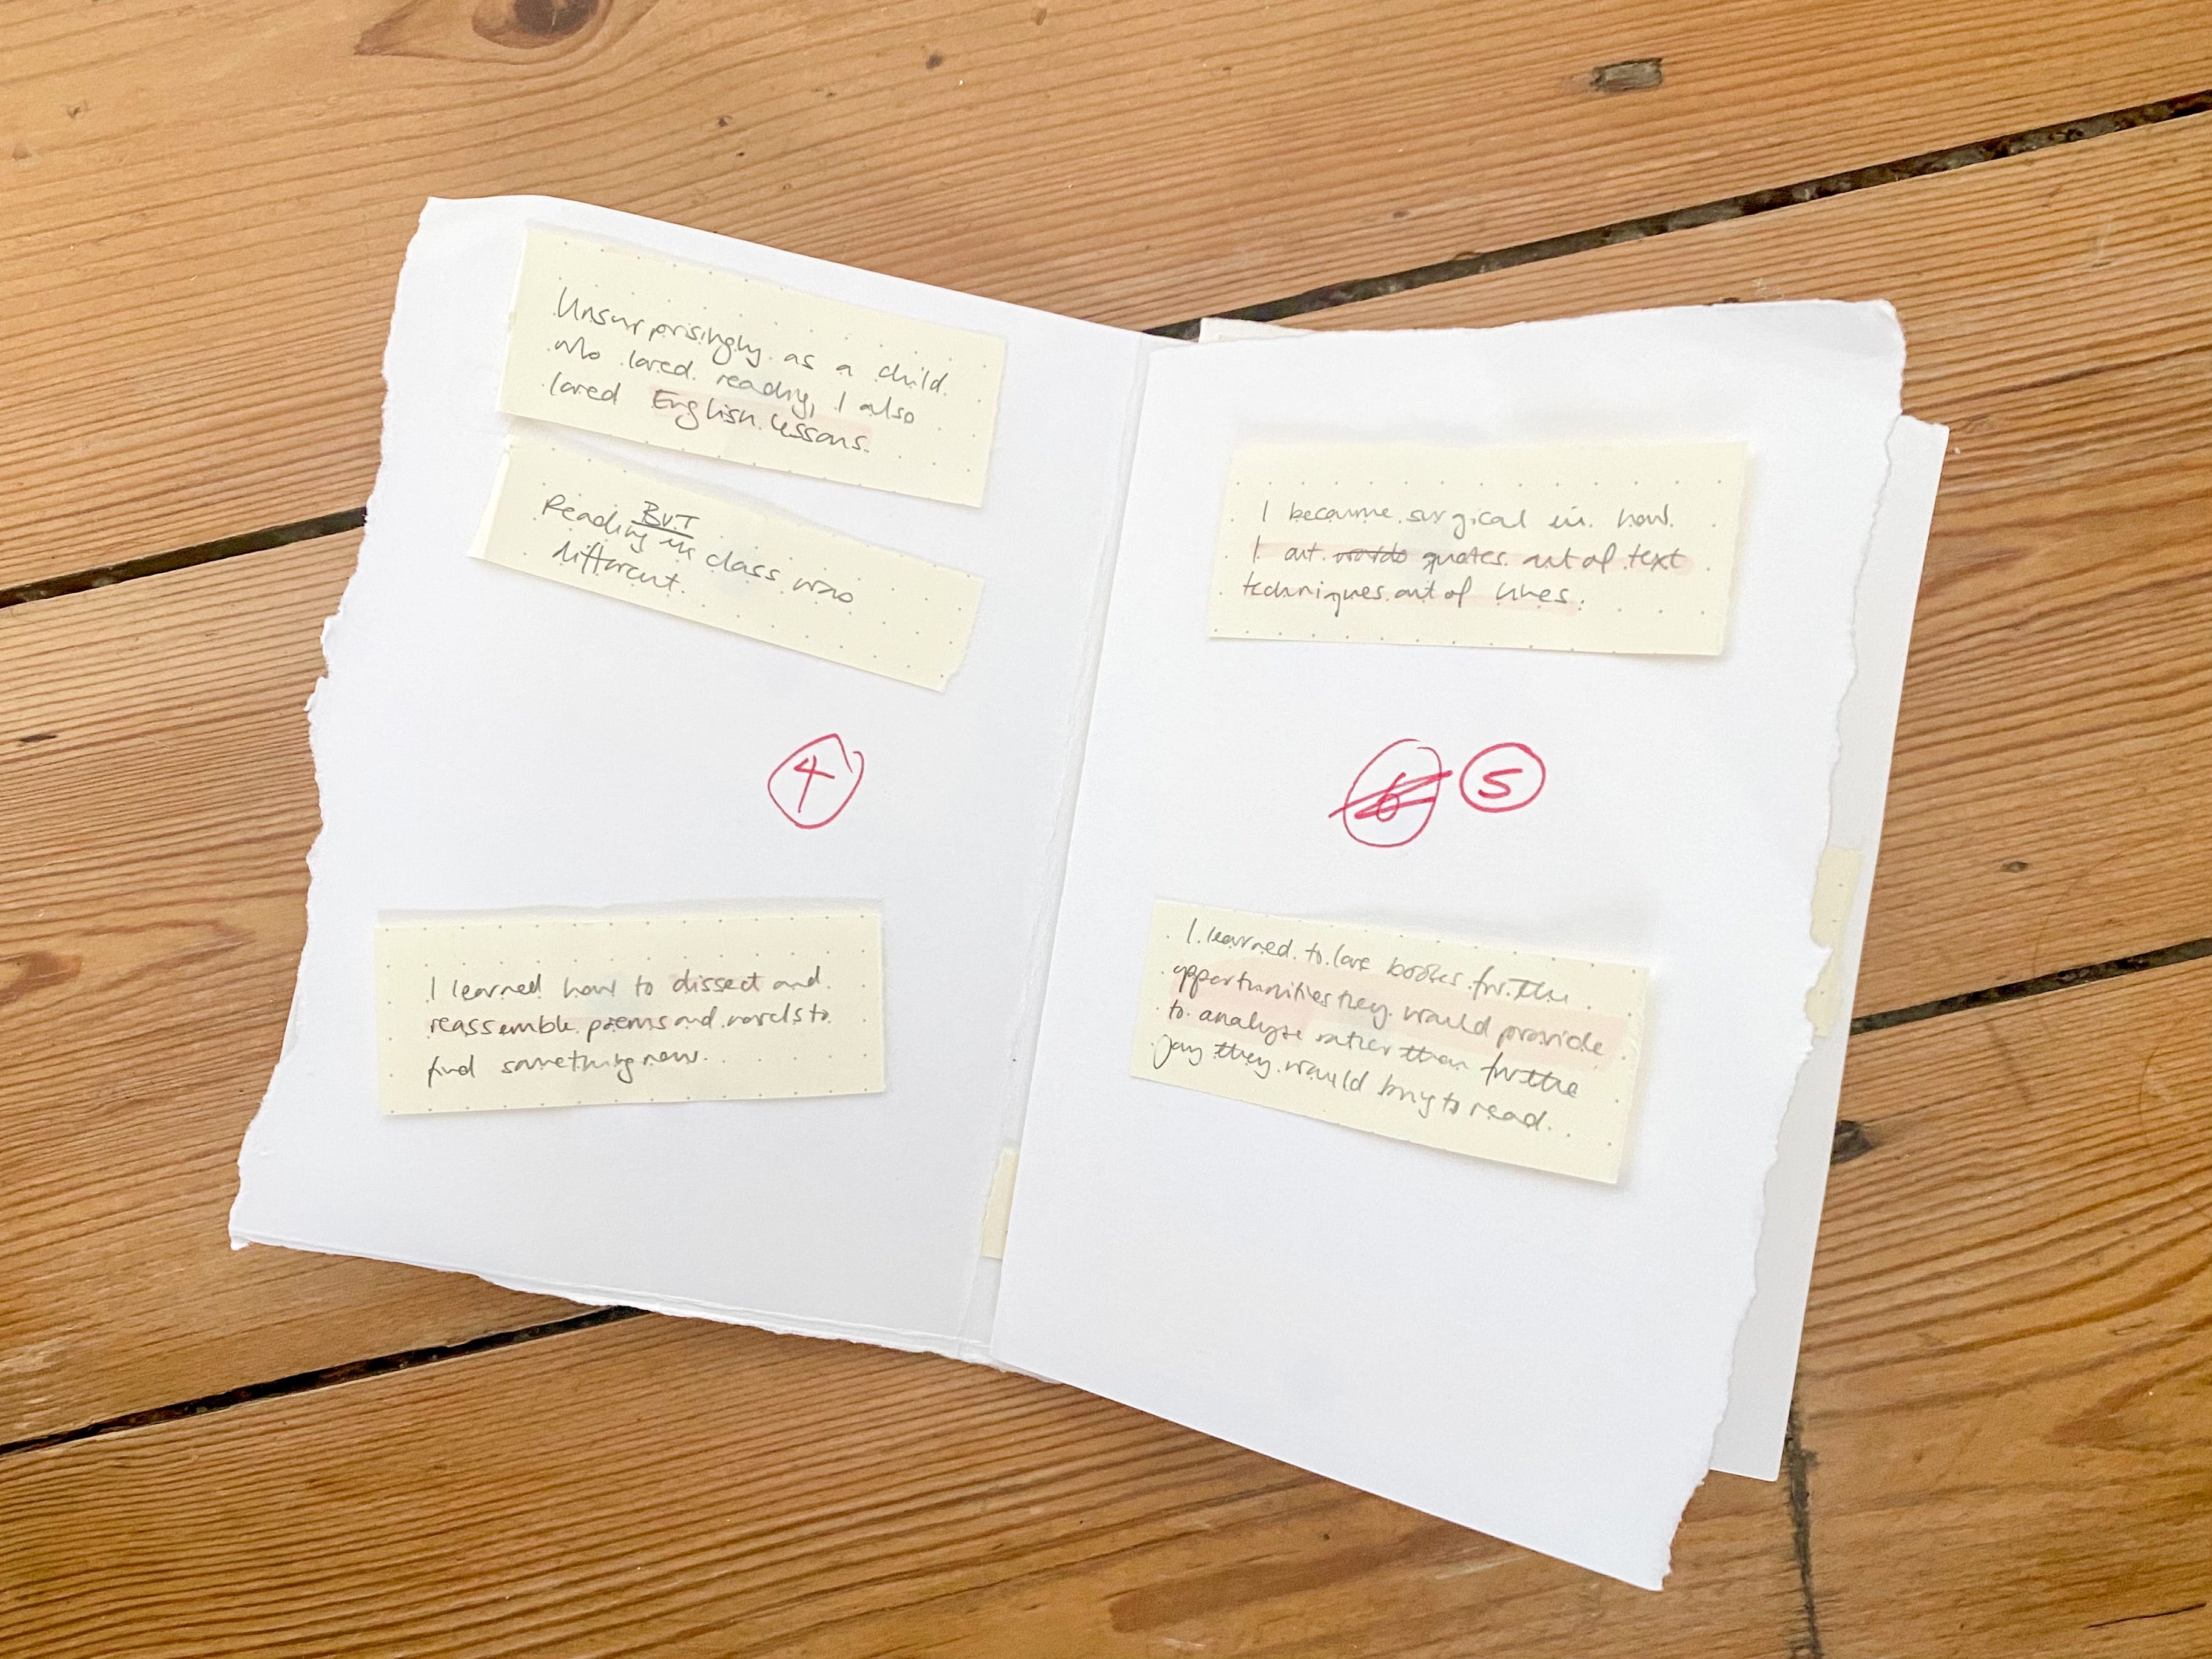 Unsurprisingly as a child
who loved reading, I also
loved English lessons.
BUT
Reading in class was
different.
4
I learned how to dissect and
reassemble poems and novels to
find something new.
I became surgical in how
I cut quotes out of text
techniques out of lines.
6 5
I learned to love books for the
opportunities they would provide
to analyze rather than for the
joy they would bring to read.